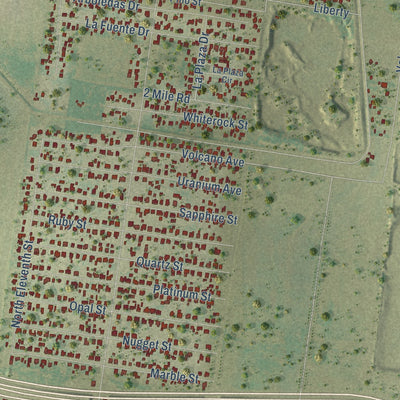 Liberty
La Fuente Dr
La Plaza Dr
La Plaza
Cir
2 Mile Rd
Whiterock St
Volcano Ave
Uranium Ave
Sapphire St
Ruby St
Quartz St
North Eleventh St
Platinum St
Opal St
Nugget St
Marble St